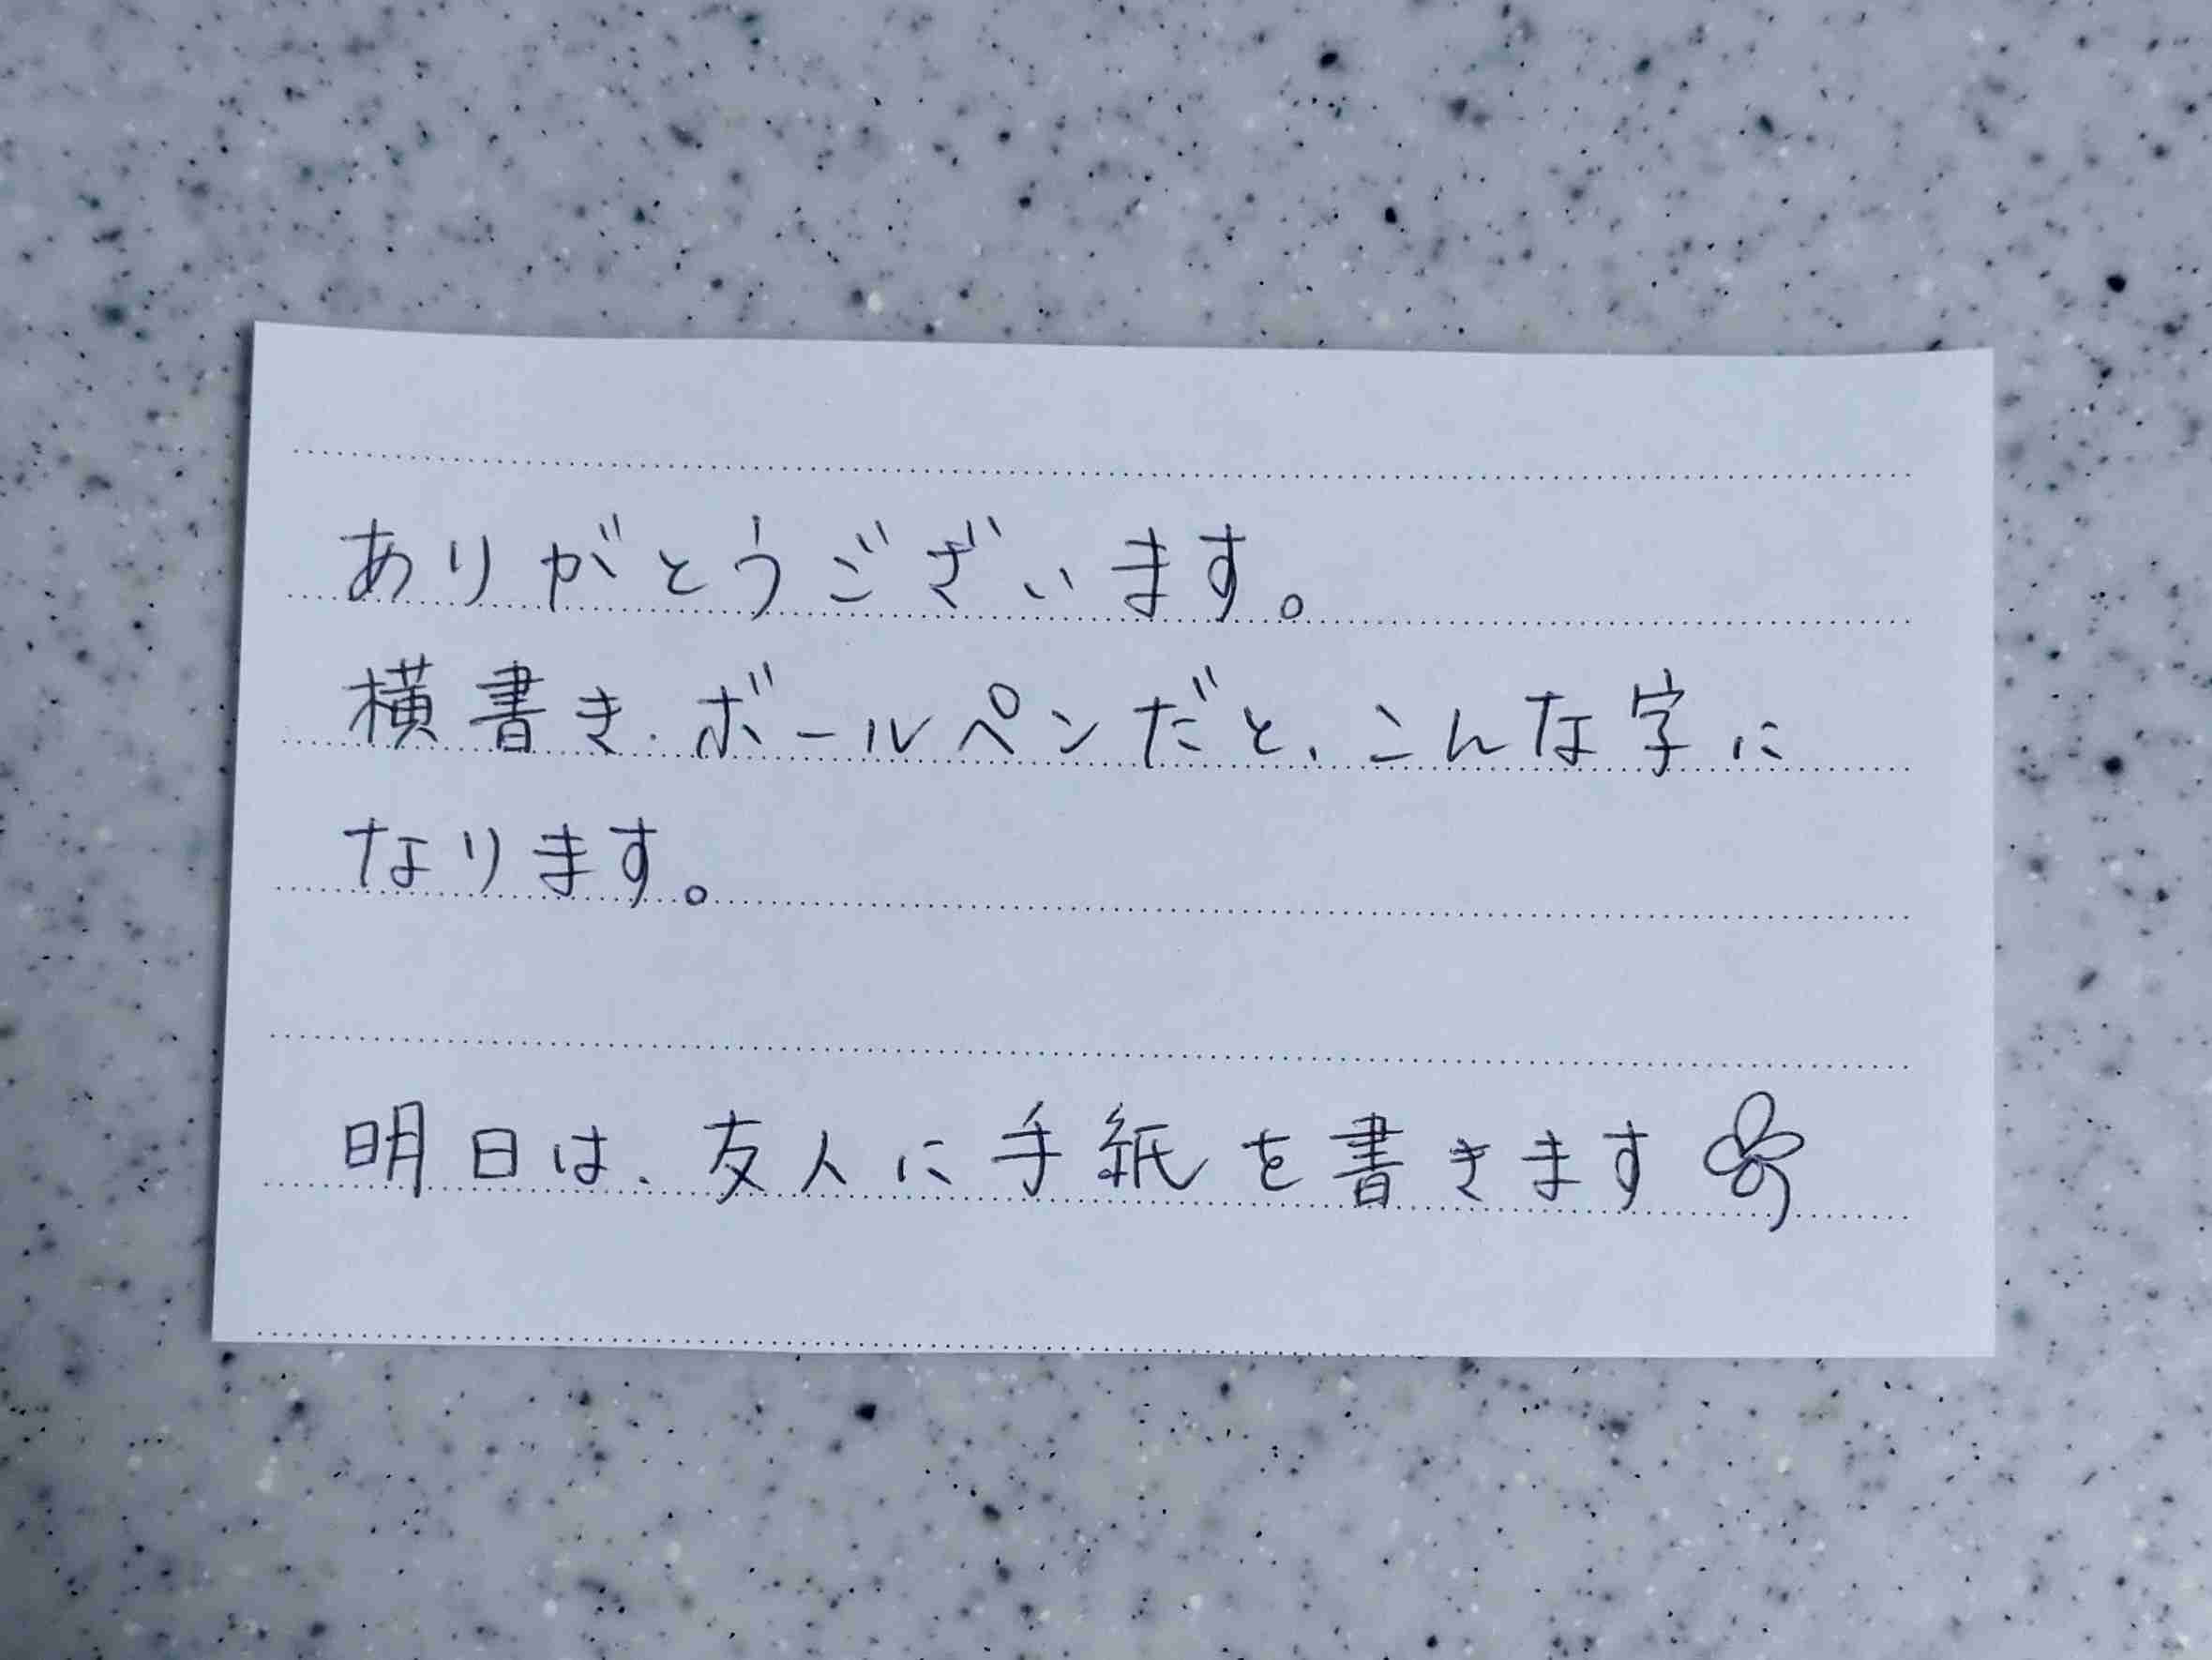 ありがとうございます。
横書き・ボールペンだと、こんな字に
なります。
明日は、友人に手紙を書きます